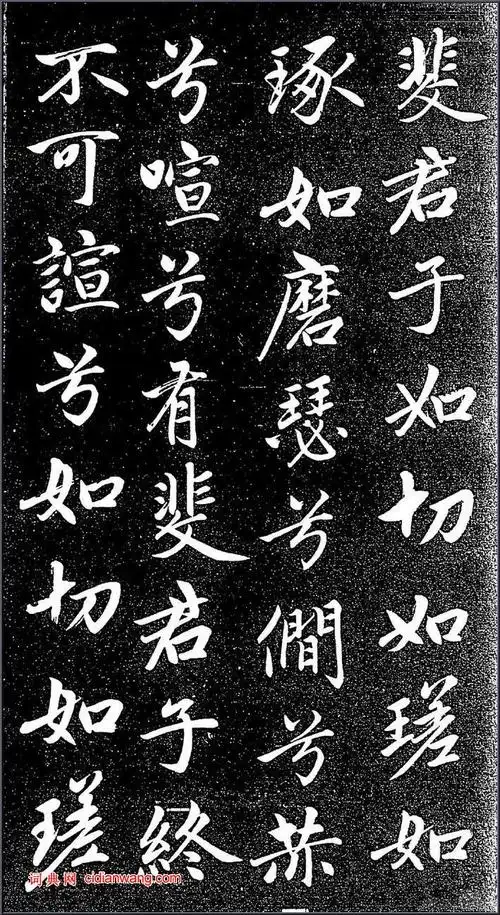 斐君子如切如瑳如
琢如磨瑟兮僩兮赫
兮喧兮有斐君子終
不可諠兮如切如瑳
词典网 cidianwang.com